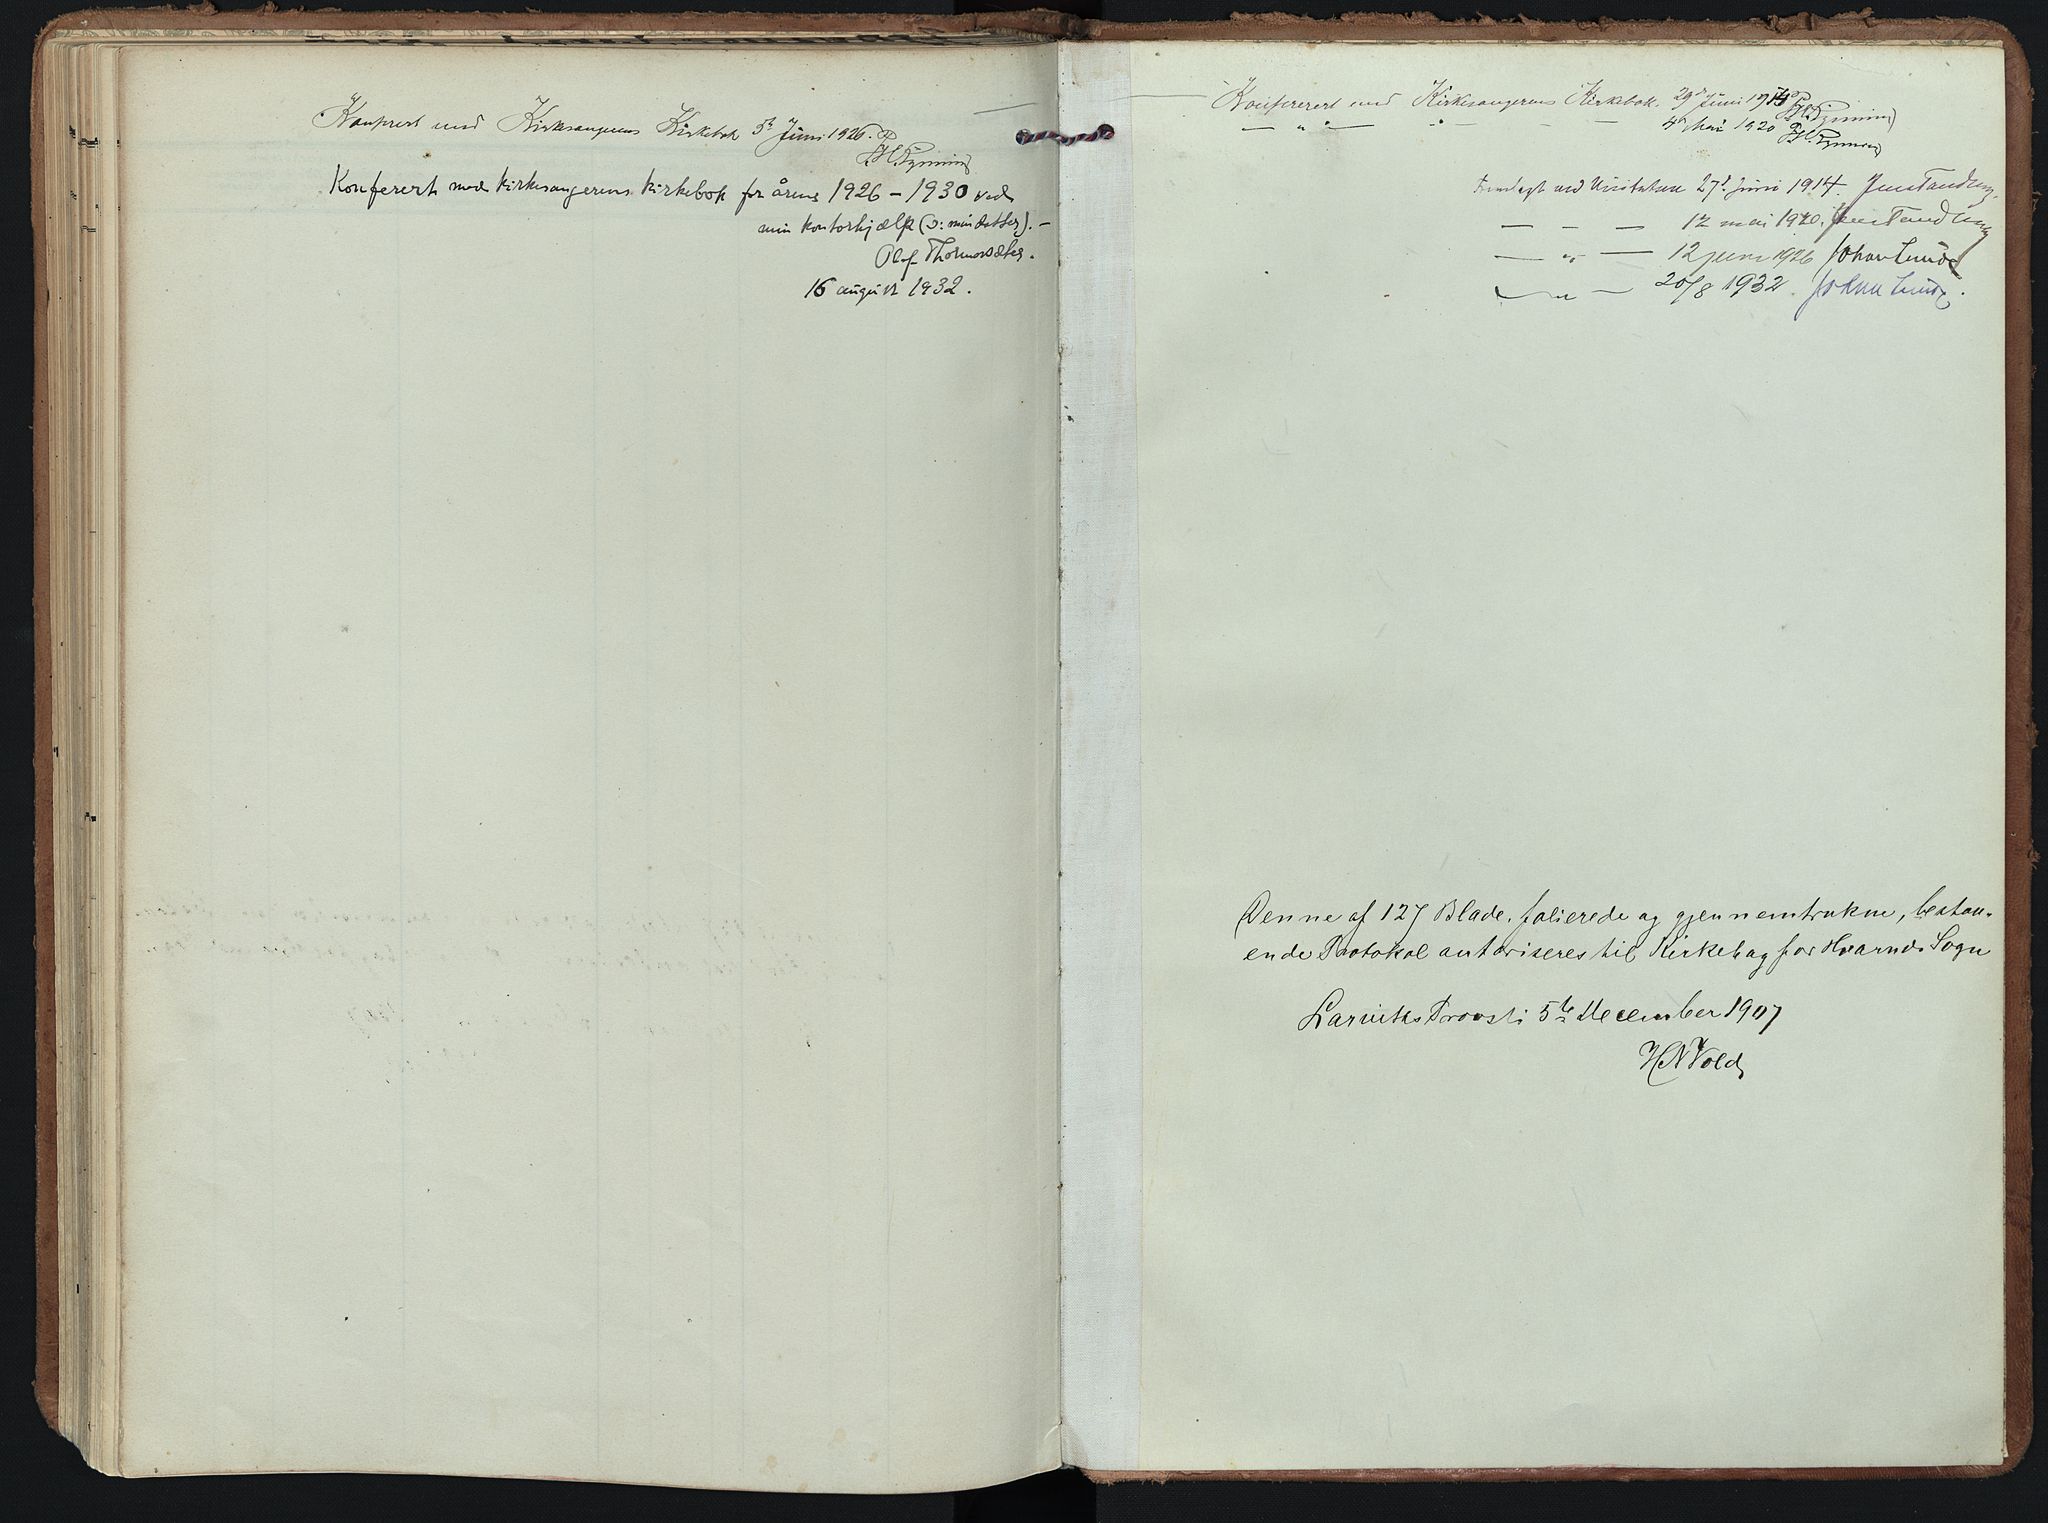 Konferert med Kirkesangerens Kirkebok 5te Juni 1926.
Konferert med kirkesangerens kirkebok for årene 1926 – 1930 ved
min kontorhjælp (ɔ: min datter). –
Olaf
16 august 1932.
Konfererert med Kirkesangerens Kirkebok. 29de Juni 1914
— " — " — — — 4de Mai 1920
Fremlagt ved Visitatsen 27de juni 1914. Jens Tandberg.
— — — 12 mai 1920. Jens Tandberg
— " — 12 juni 1926 Johan Lunde
— " — 20/8 1932. Johan Lunde.
Denne af 127 Blade, folierede og gjennemtrukne, bestaa-
ende Protokol autoriseres til Kirkebog for Hvarnes Sogn
Larviks Provsti 5te December 1907
H N Vold